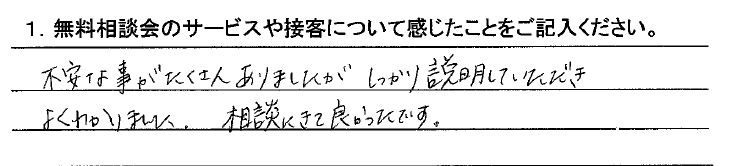 1. 無料相談会のサービスや接客について感じたことをご記入ください。
不安な事がたくさんありましたが しっかり説明していただき
よくわかりました。 相談にきて良かったです。